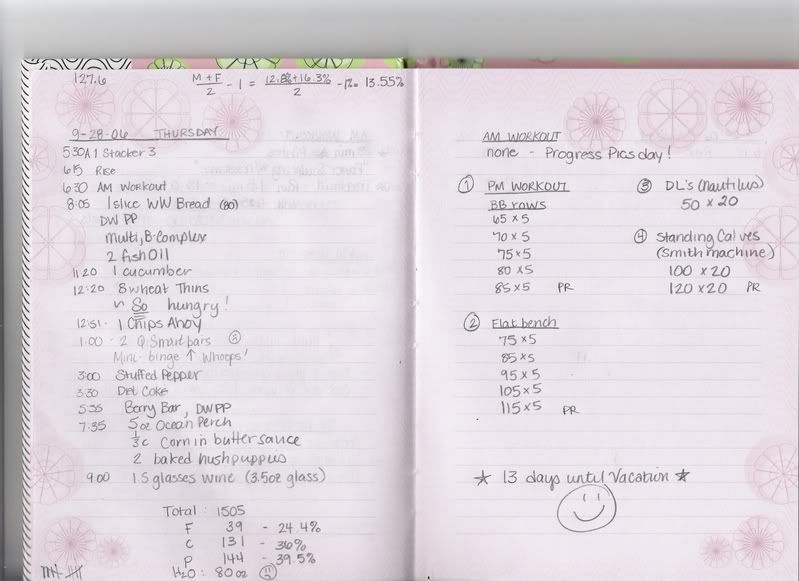 127.6
M+F/2 - 1 = 12.8%+16.3%/2 - 1% = 13.55%
9-28-06 THURSDAY
530A 1 Stacker 3
615 Rise
630 AM Workout
8:05 1 slice WW Bread (80)
DWPP
multi, B-Complex
2 fish Oil
11:20 1 cucumber
12:20 8 Wheat Thins
So hungry!
12:51 - 1 Chips Ahoy
1:00 - 2 Q Smart bars
Mini-binge ↑ Whoops!
3:00 Stuffed Pepper
3:30 Diet Coke
5:35 Berry Bar, DWPP
7:35 5 oz Ocean Perch
1/3 c Corn in butter sauce
2 baked hushpuppies
9:00 1.5 glasses wine (3.5oz glass)
Total: 1505
F 39 - 24.4%
C 131 - 36%
P 144 - 39.5%
H2O: 80 oz
AM WORKOUT
none - Progress Pics day!
① PM WORKOUT
BB rows
65 x 5
70 x 5
75 x 5
80 x 5
85 x 5 PR
② Flat bench
75 x 5
85 x 5
95 x 5
105 x 5
115 x 5 PR
③ DL's (nautilus)
50 x 20
④ Standing Calves
(Smith machine)
100 x 20
120 x 20 PR
☆ 13 days until Vacation ☆